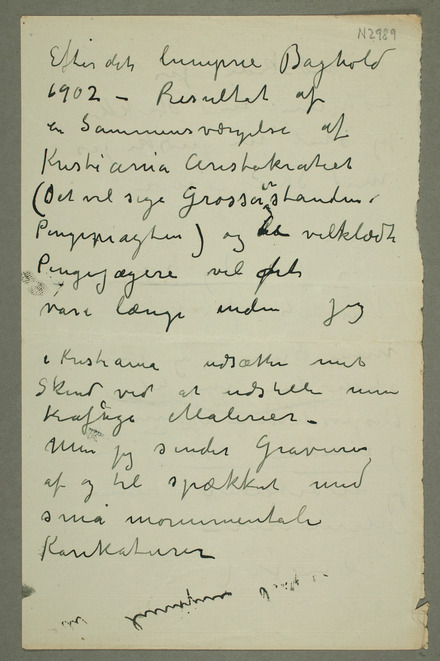 N2989
Efter det lumpne Baghold
1902 – Resultat af
en Sammensværgelse af
Kristiania Aristokratiet
(Det vil sige Grossererstanden
Pengemagten) og velklædte
Pengejægere vil det
være længe inden jeg
i Kristiania udsætter mit
Skind ved at udstille mine
kraftige Malerier –
Men jeg sender Gravurer
af og til spækket med
små monumentale
Karikaturer